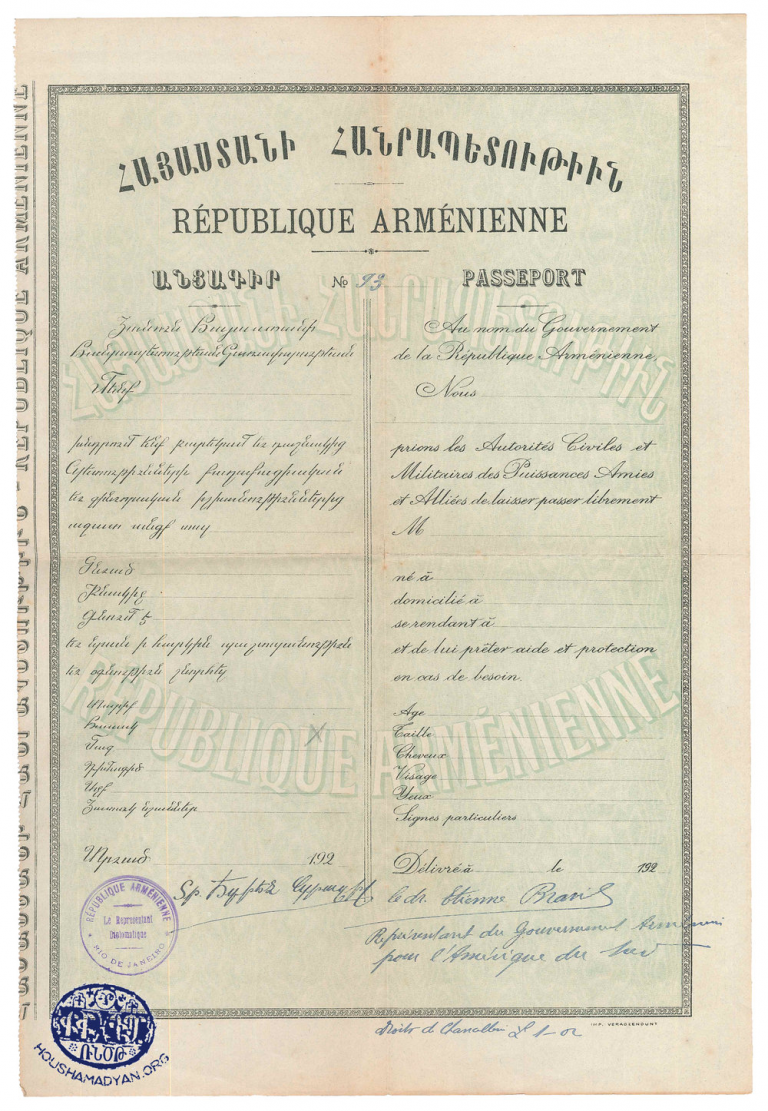 ՀԱՅԱՍՏԱՆԻ ՀԱՆՐԱՊԵՏՈՒԹԻՒՆ
RÉPUBLIQUE ARMÉNIENNE
ԱՆՑԱԳԻՐ № 93 PASSEPORT
Յանուն Հայաստանի
Հանրապետութեան Կառավարութեան
Մենք
խնդրում ենք բարեկամ եւ դաշնակից
Պետութիւնների քաղաքացիական
եւ զինուորական իշխանութիւններից
ազատ անցք տալ
Ծնուած
Բնակիչ
Գնում է
եւ նրան ի հարկին պաշտպանութիւն
եւ օգնութիւն շնորհել
Տարիք
Հասակ
Մազ
Դիմագիծ
Աչք
Յատուկ նշաններ
Տրուած 192
Au nom du Gouvernement
de la République Arménienne,
Nous
prions les Autorités Civiles et
Militaires des Puissances Amies
et Alliées de laisser passer librement
M
né à
domicilié à
se rendant à
et de lui prêter aide et protection
en cas de besoin.
Age
Taille
Cheveux
Visage
Yeux
Signes particuliers
Délivré à le 192
le dr. Etienne Brasil
Représentant du Gouvernement Arménien
pour l'Amérique du Sud
RÉPUBLIQUE ARMÉNIENNE
Le Représentant
Diplomatique
RIO DE JANEIRO
HOUSHAMADYAN.ORG
IMP. VERADZENOUNT
ՀԱՅԱՍՏԱՆԻ ՀԱՆՐԱՊԵՏՈՒԹԻՒՆ
RÉPUBLIQUE ARMÉNIENNE
RÉPUBLIQUE ARMÉNIENNE